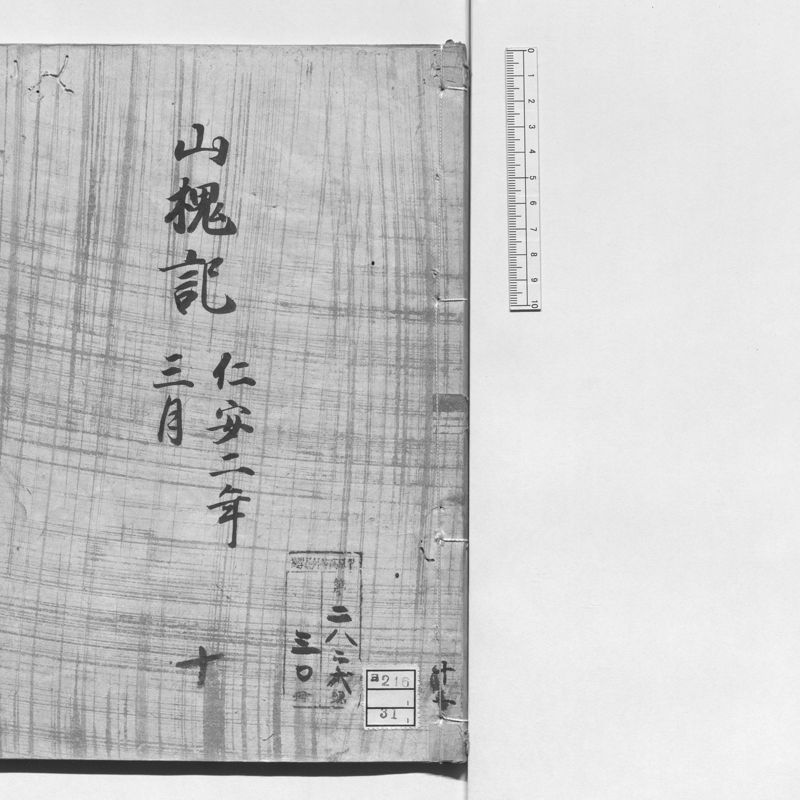 山槐記
仁安二年
三月
十
二八二六
三〇
a216
31
0 1 2 3 4 5 6 7 8 9 10